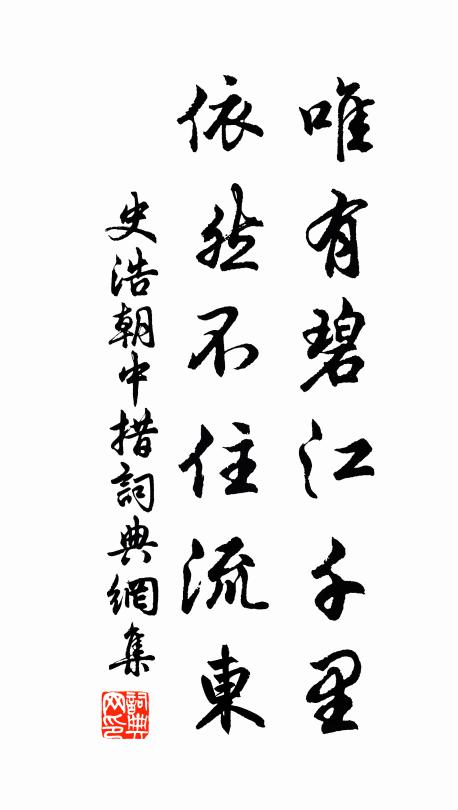 唯有碧江千里
依然不住流東
史浩朝中措詞典網集
詞典網印